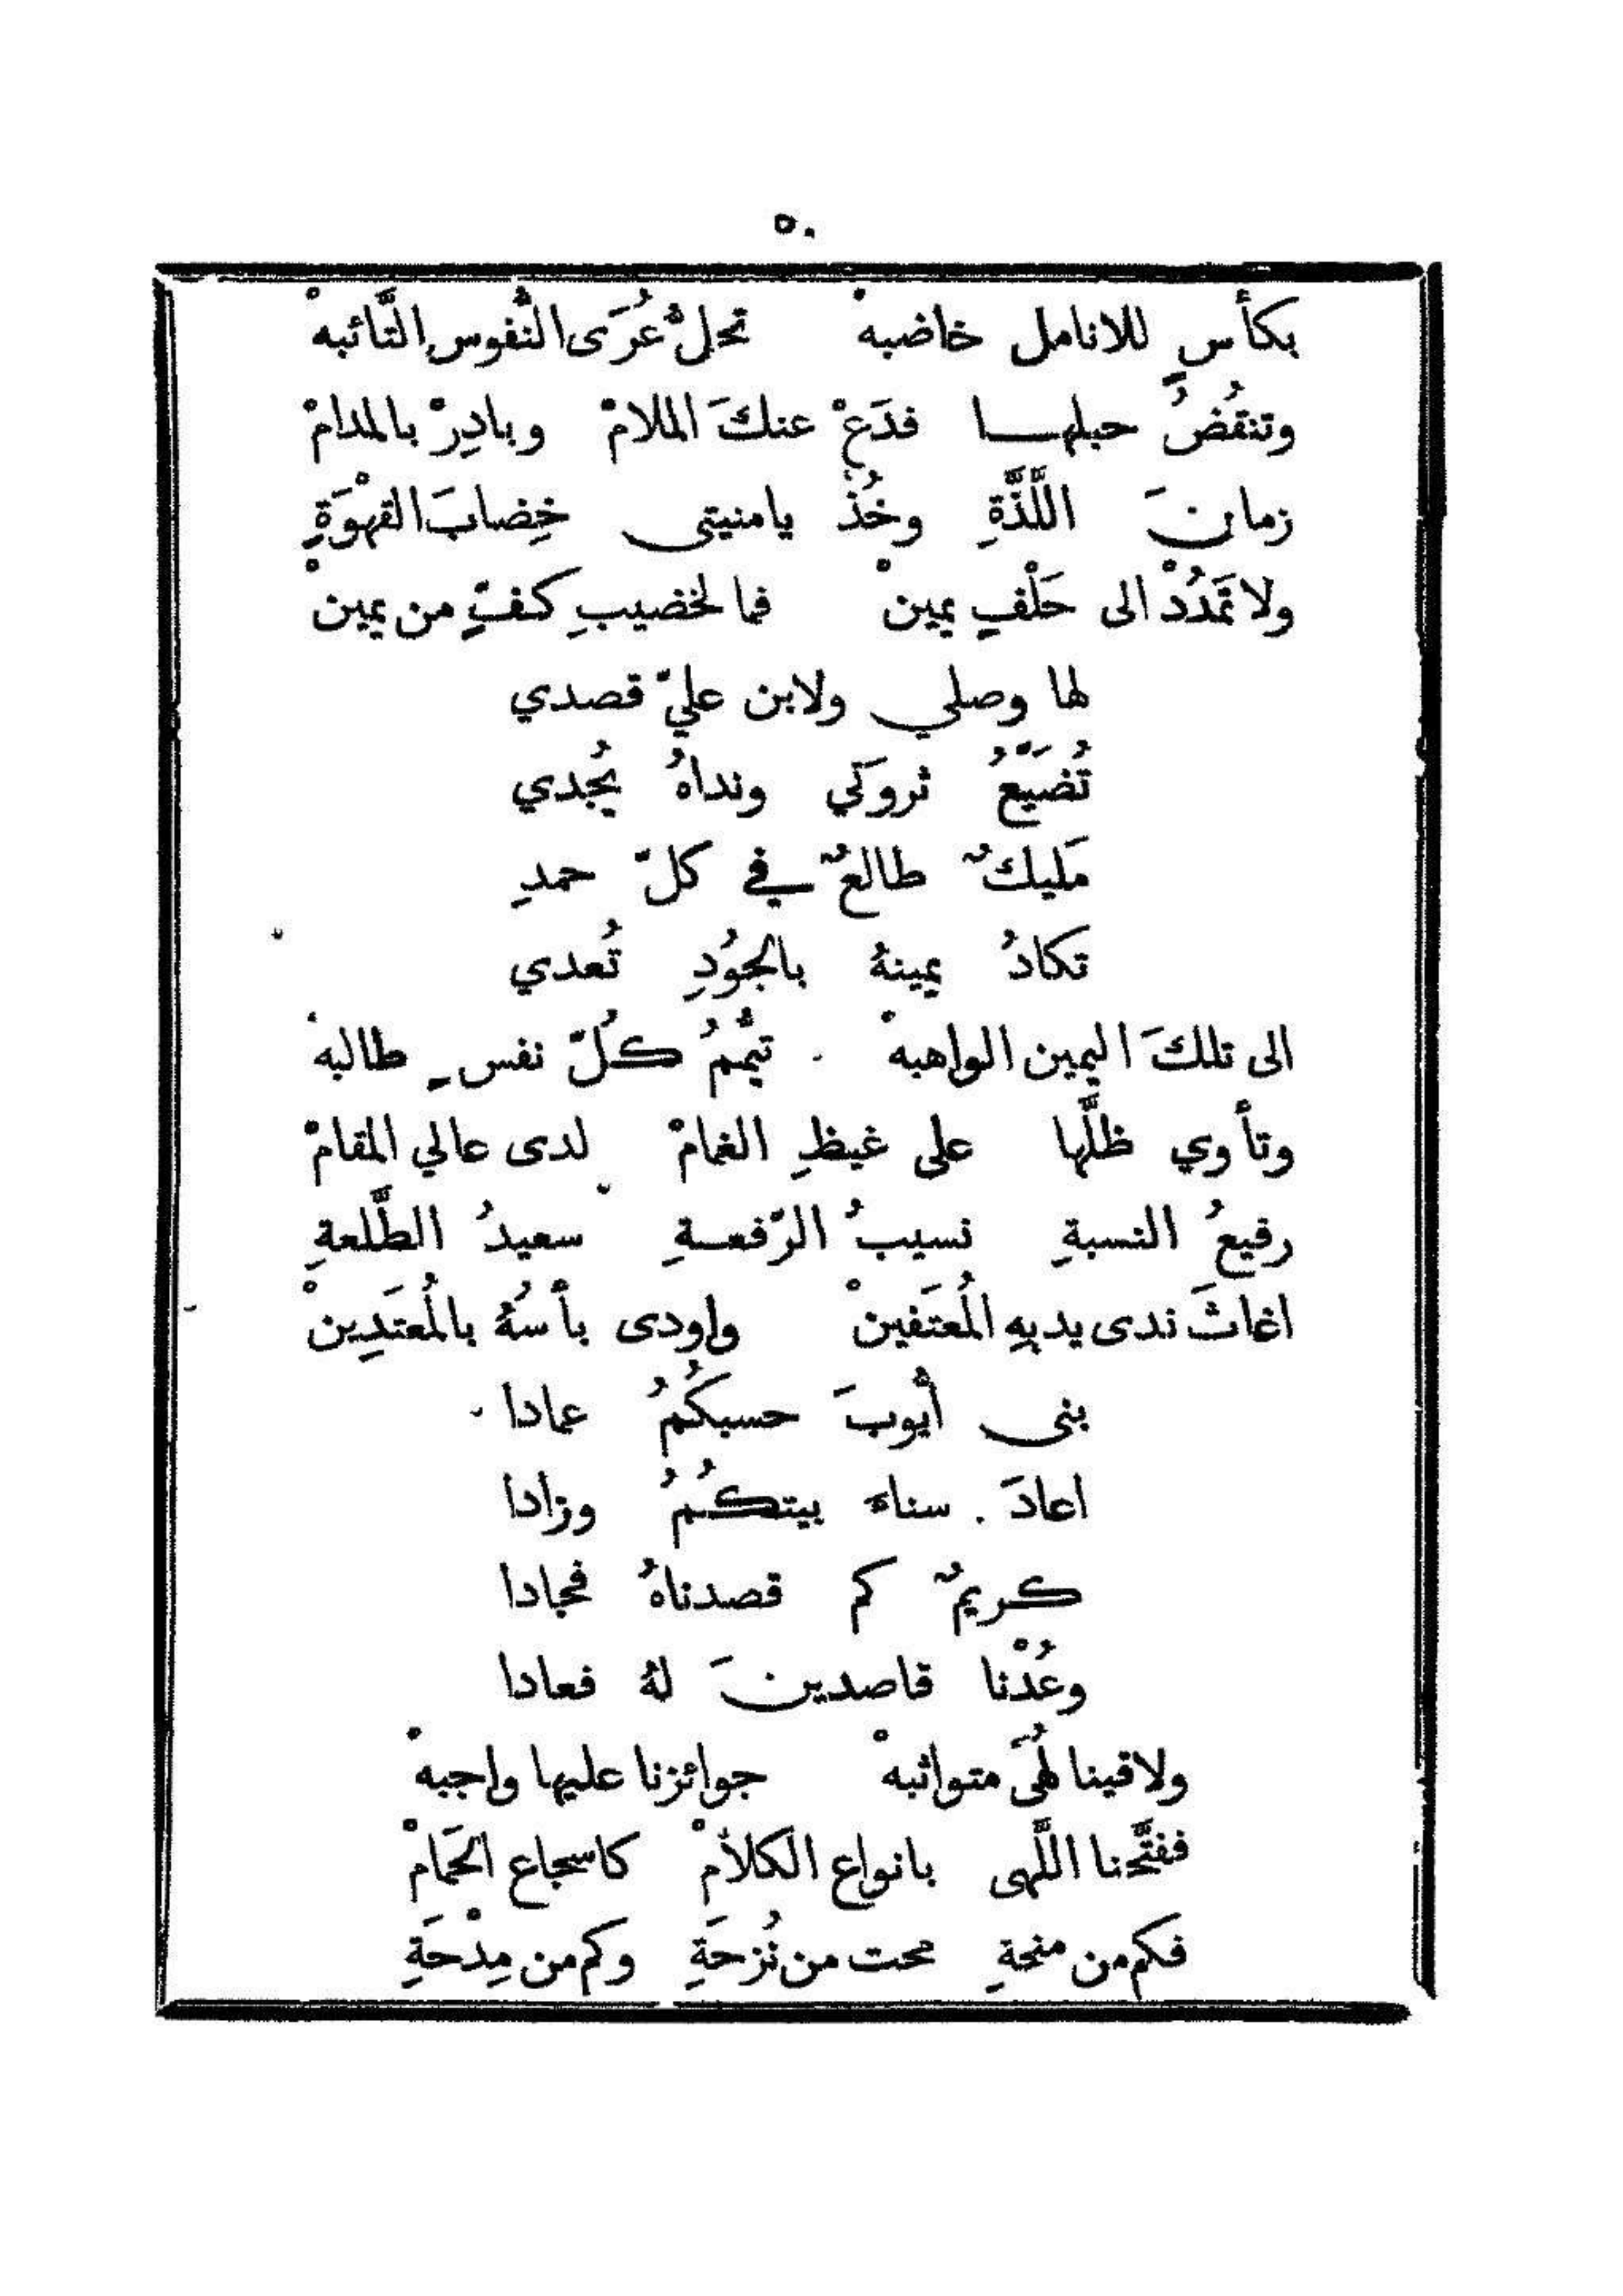 ٥٠
بكأسٍ للانامل خاضبهْ تحلُّ عُرَى النُّفوسِ التَّائبهْ
وتنقُضُ حبلهـا فدَعْ عنكَ الملامْ وبادِرْ بالمدامْ
زمانَ اللَّذَّةِ وخُذْ يامنيتى خِضابَ القهْوَةِ
ولا تَمْدُدْ الى حَلْفٍ يمينْ فما لخضيبِ كفٍّ من يمينْ
لها وصلي ولابن عليّ قصدي
تُضَيِّعُ ثروَتي ونداهُ يُجدي
مَليكٌ طالعٌ في كلّ حمدِ
تكادُ يمينهُ بالجوُدِ تُعدي
الى تلكَ اليمين الواهبهْ تيُّممُ كُلّ نفسٍ طالبهْ
وتأوي ظلَّها على غيظِ الغمامْ لدى عالي المقامْ
رفيعُ النسبةِ نسيبُ الرّفعـةِ سعيدُ الطَّلعةِ
اغاثَ ندى يديهِ المُعتَفينْ واودى بأسُهُ بالمُعتَدِينْ
بنى أيُّوبَ حسبكُمُ عمادا
اعادَ سناءَ بيتكُمُ وزادا
كريمٌ كم قصدناهُ فجادا
وعُدْنا قاصدينَ لهُ فعادا
ولاقينا لُهىً متواثبهْ جوائزنا عليها واجبهْ
ففتَّحنا اللَّهى بانواع الكلامْ كاسجاع الحَمامْ
فكم من منحةِ محت من نُزحَةِ وكم من مِدْحَةِ